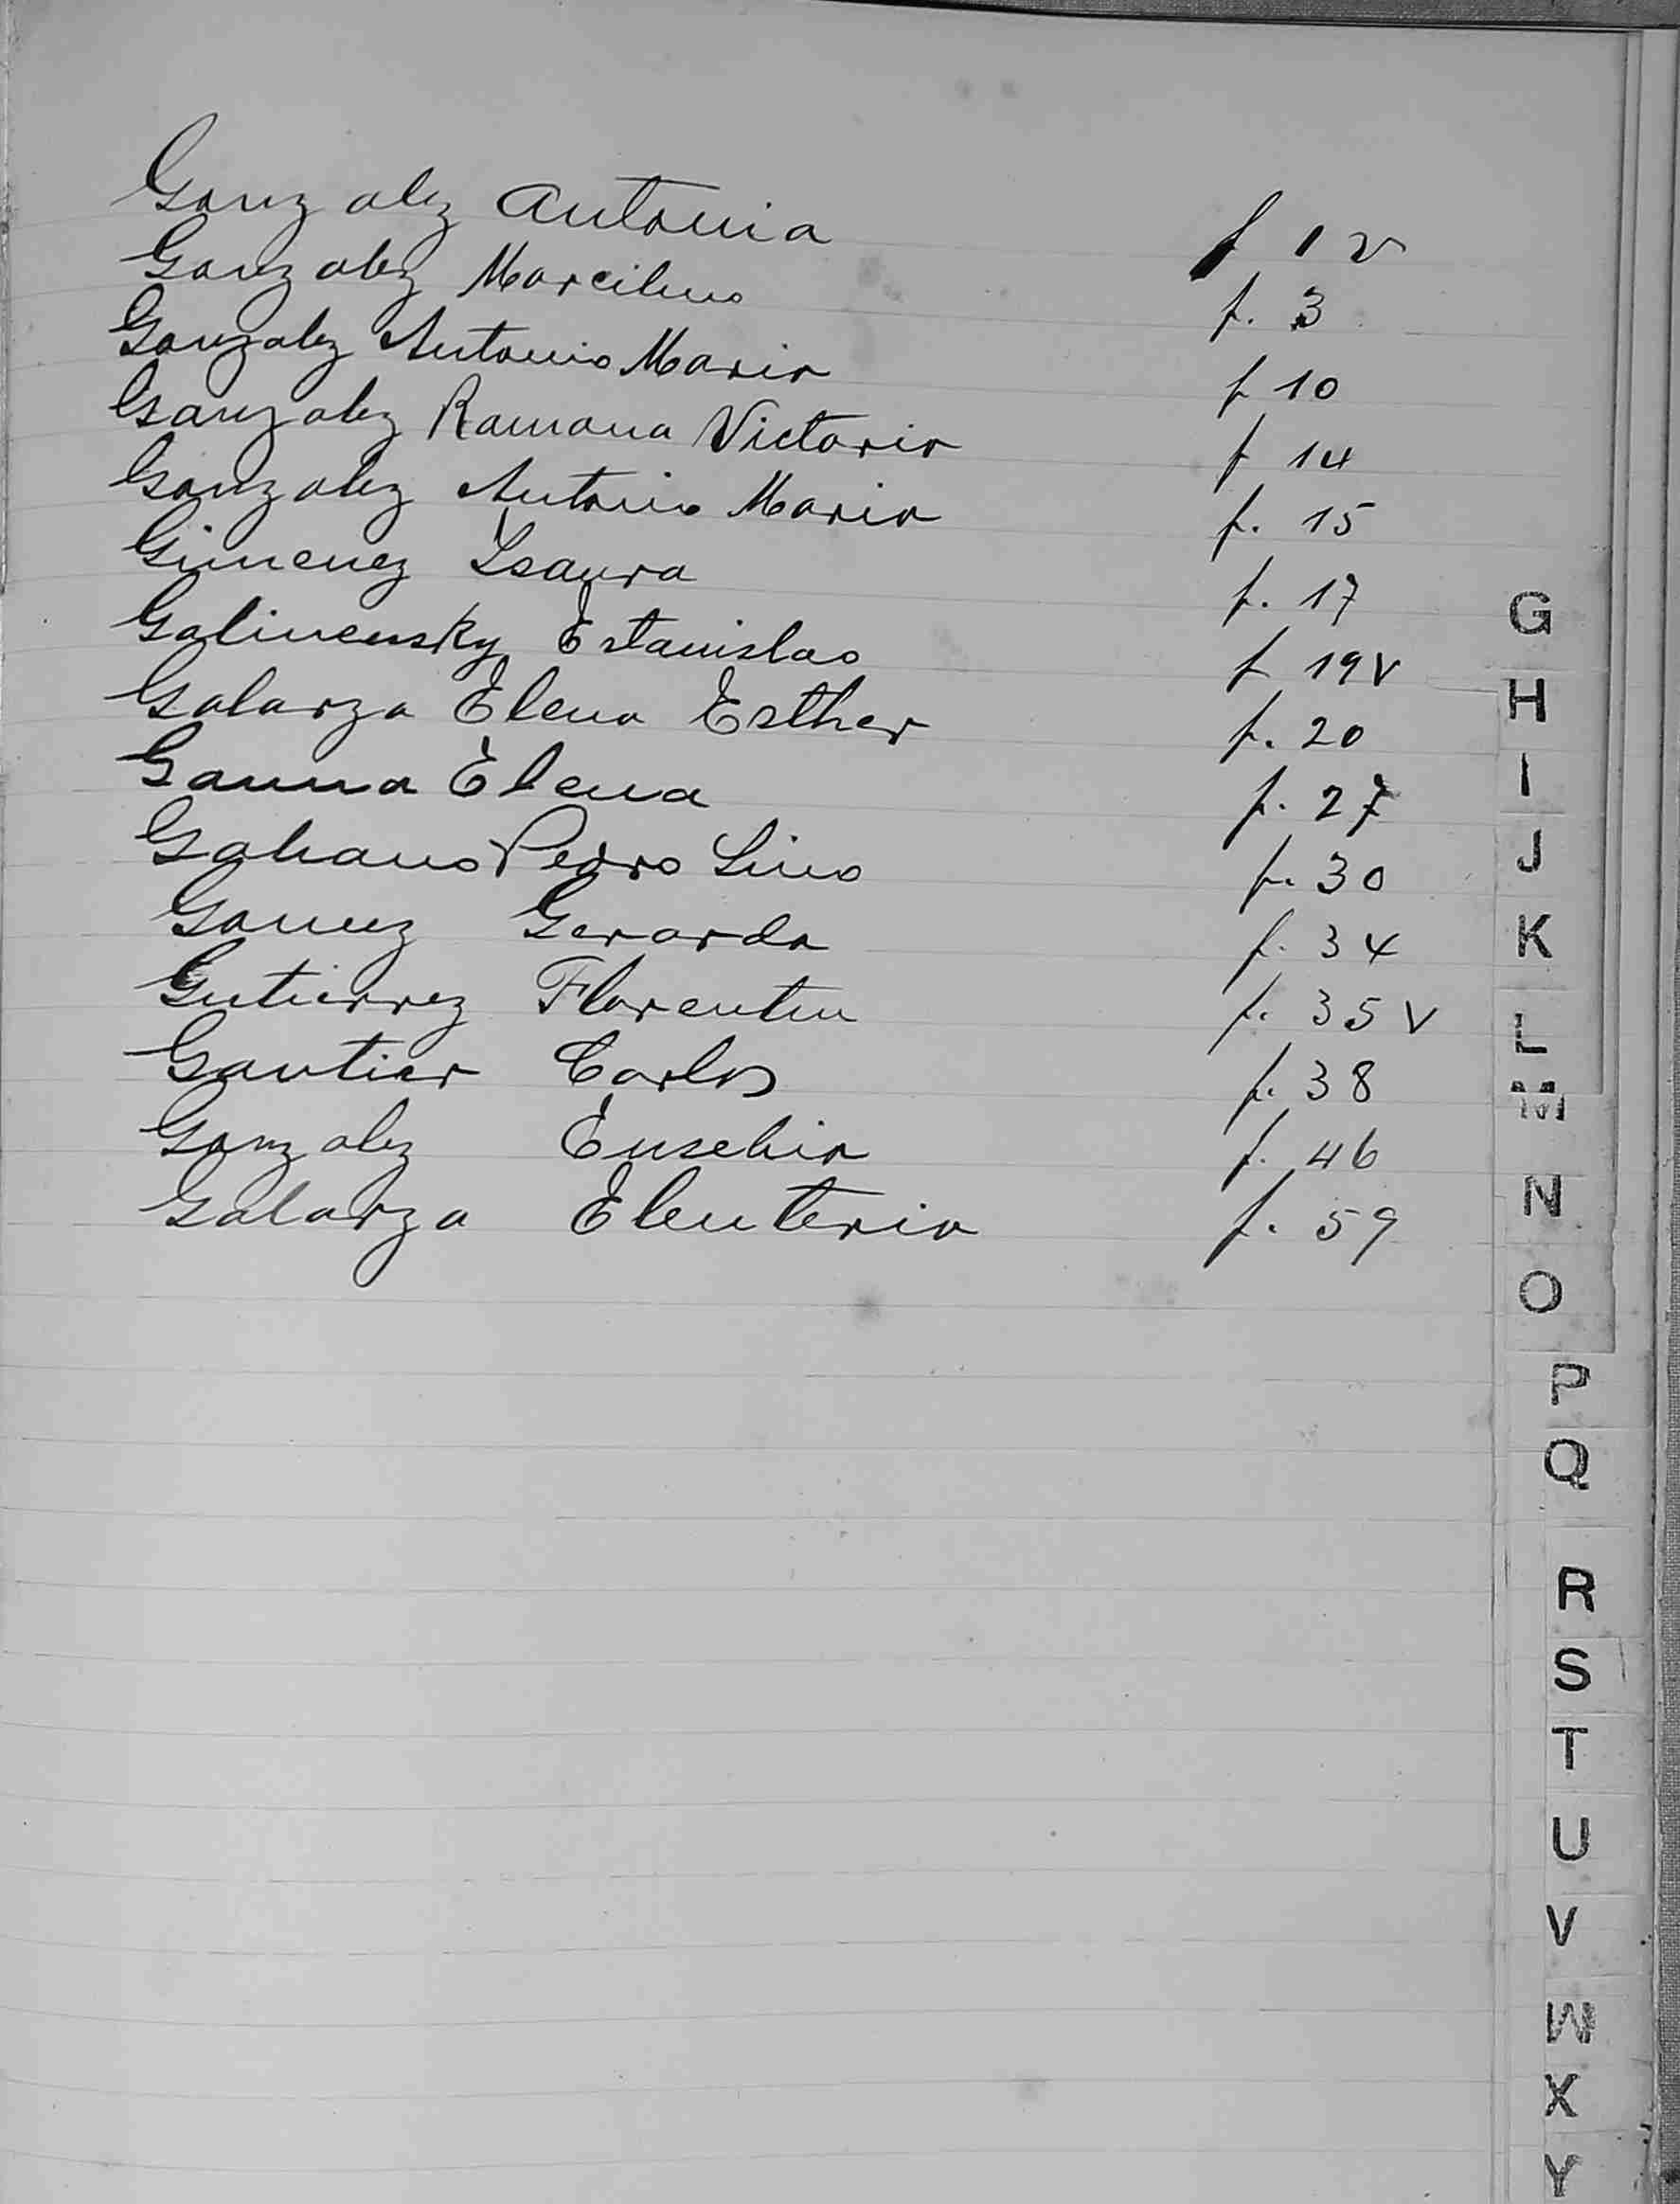 Gonzalez Antonia f 1 v
Gonzalez Marcilino f. 3
Gonzalez Antonio Maria f 10
Gonzalez Ramona Victoria f 14
Gonzalez Antonio Maria f. 15
Gimenez Isaura f. 17
Galinensky Estanislao f 19 v
Galarza Elena Esther f. 20
Gauna Elena f. 27
Galeano Pedro Lino f. 30
Gomez Gerardo f. 34
Gutierrez Florentin f. 35 v
Gautier Carlos f. 38
Gonzalez Eusebio f. 46
Galarza Eleuterio f. 59
G
H
I
J
K
L
M
N
O
P
Q
R
S
T
U
V
W
X
Y